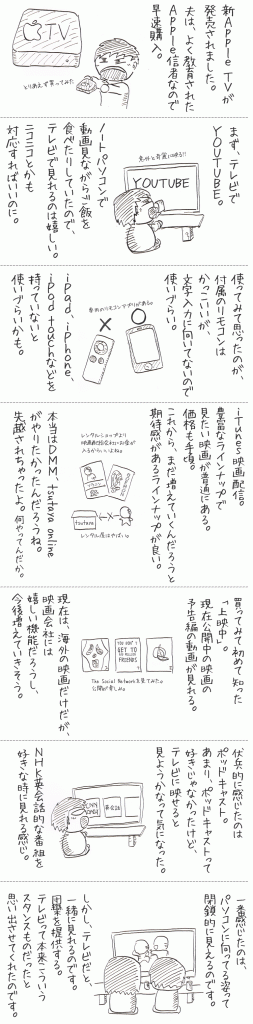 新Apple TVが
発売されました。
夫は、よく教育された
Apple信者なので
早速購入。
TV
とりあえず買ってみた
まず、テレビで
YOUTUBE。
意外と綺麗に映る!!
YOUTUBE
ノートパソコンで
動画見ながらご飯を
食べたりしていたので、
テレビで見れるのは嬉しい。
ニコニコとかも
対応すればいいのに。
使ってみて思ったのが、
付属のリモコンは
かっこいいが、
文字入力に向いてないので
使いづらい。
専用のリモコンアプリがある。
iPad、iPhone、
iPod touchなどを
持っていないと
使いづらいかも。
iTunes映画配信。
豊富なラインナップで
見たい映画が普通にある。
価格も手頃。
これから、まだ増えていくんだろうと
期待感があるラインナップが良い。
レンタルショップより
映画会社にお金が
入るからいいよね
tsutaya
レンタル屋はやばい。
本当はDMM、tsutaya online
がやりたかったんだろうね。
先越されちゃったよ。何やってんだか。
買ってみて初めて知った
「上映中」。
現在公開中の映画の
予告編の動画が見れる。
YOU DON'T
GET TO
500 MILLION
FRIENDS
The Social Networkを見てみた。
公開が楽しみ。
現在は、海外の映画だけだが、
映画会社には
嬉しい機能だろうし、
今後増えていきそう。
伏兵的に感じたのは
ポッドキャスト。
あまり、ポッドキャストって
好きじゃなかったけど、
テレビに映せると
見ようかなって気になった。
CNN
英会話
NHK英会話的な番組を
好きな時に見れる感じ。
一番感じたのは、
パソコンに向ってる姿って
閉鎖的に見えるのです。
しかし、テレビだと、
一緒に見れるのです。
団欒を提供する。
テレビって本来こういう
スタンスものだったと
思い出させてくれたのです。